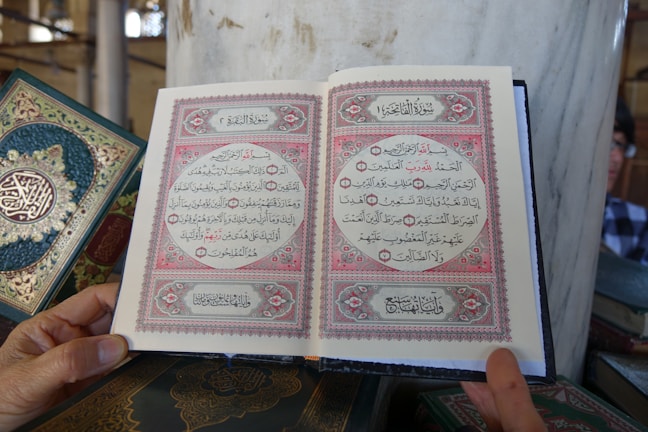 سُورَةُ الْفَاتِحَةِ ١
بِسْمِ اللَّهِ الرَّحْمَٰنِ الرَّحِيمِ
الْحَمْدُ لِلَّهِ رَبِّ الْعَٰلَمِينَ
الرَّحْمَٰنِ الرَّحِيمِ مَٰلِكِ يَوْمِ الدِّينِ
إِيَّاكَ نَعْبُدُ وَإِيَّاكَ نَسْتَعِينُ اهْدِنَا
الصِّرَٰطَ الْمُسْتَقِيمَ صِرَٰطَ الَّذِينَ أَنْعَمْتَ
عَلَيْهِمْ غَيْرِ الْمَغْضُوبِ عَلَيْهِمْ
وَلَا الضَّالِّينَ
وَآيَاتُهَا سَبْعٌ
سُورَةُ الْبَقَرَةِ ٢
بِسْمِ اللَّهِ الرَّحْمَٰنِ الرَّحِيمِ
الٓمٓ ذَٰلِكَ الْكِتَٰبُ لَا رَيْبَ فِيهِ هُدًى
لِّلْمُتَّقِينَ الَّذِينَ يُؤْمِنُونَ بِالْغَيْبِ وَيُقِيمُونَ الصَّلَوٰةَ
وَمِمَّا رَزَقْنَٰهُمْ يُنفِقُونَ وَالَّذِينَ يُؤْمِنُونَ بِمَا أُنزِلَ
إِلَيْكَ وَمَا أُنزِلَ مِن قَبْلِكَ وَبِالْآخِرَةِ هُمْ يُوقِنُونَ
أُولَٰئِكَ عَلَىٰ هُدًى مِّن رَّبِّهِمْ وَأُولَٰئِكَ
هُمُ الْمُفْلِحُونَ